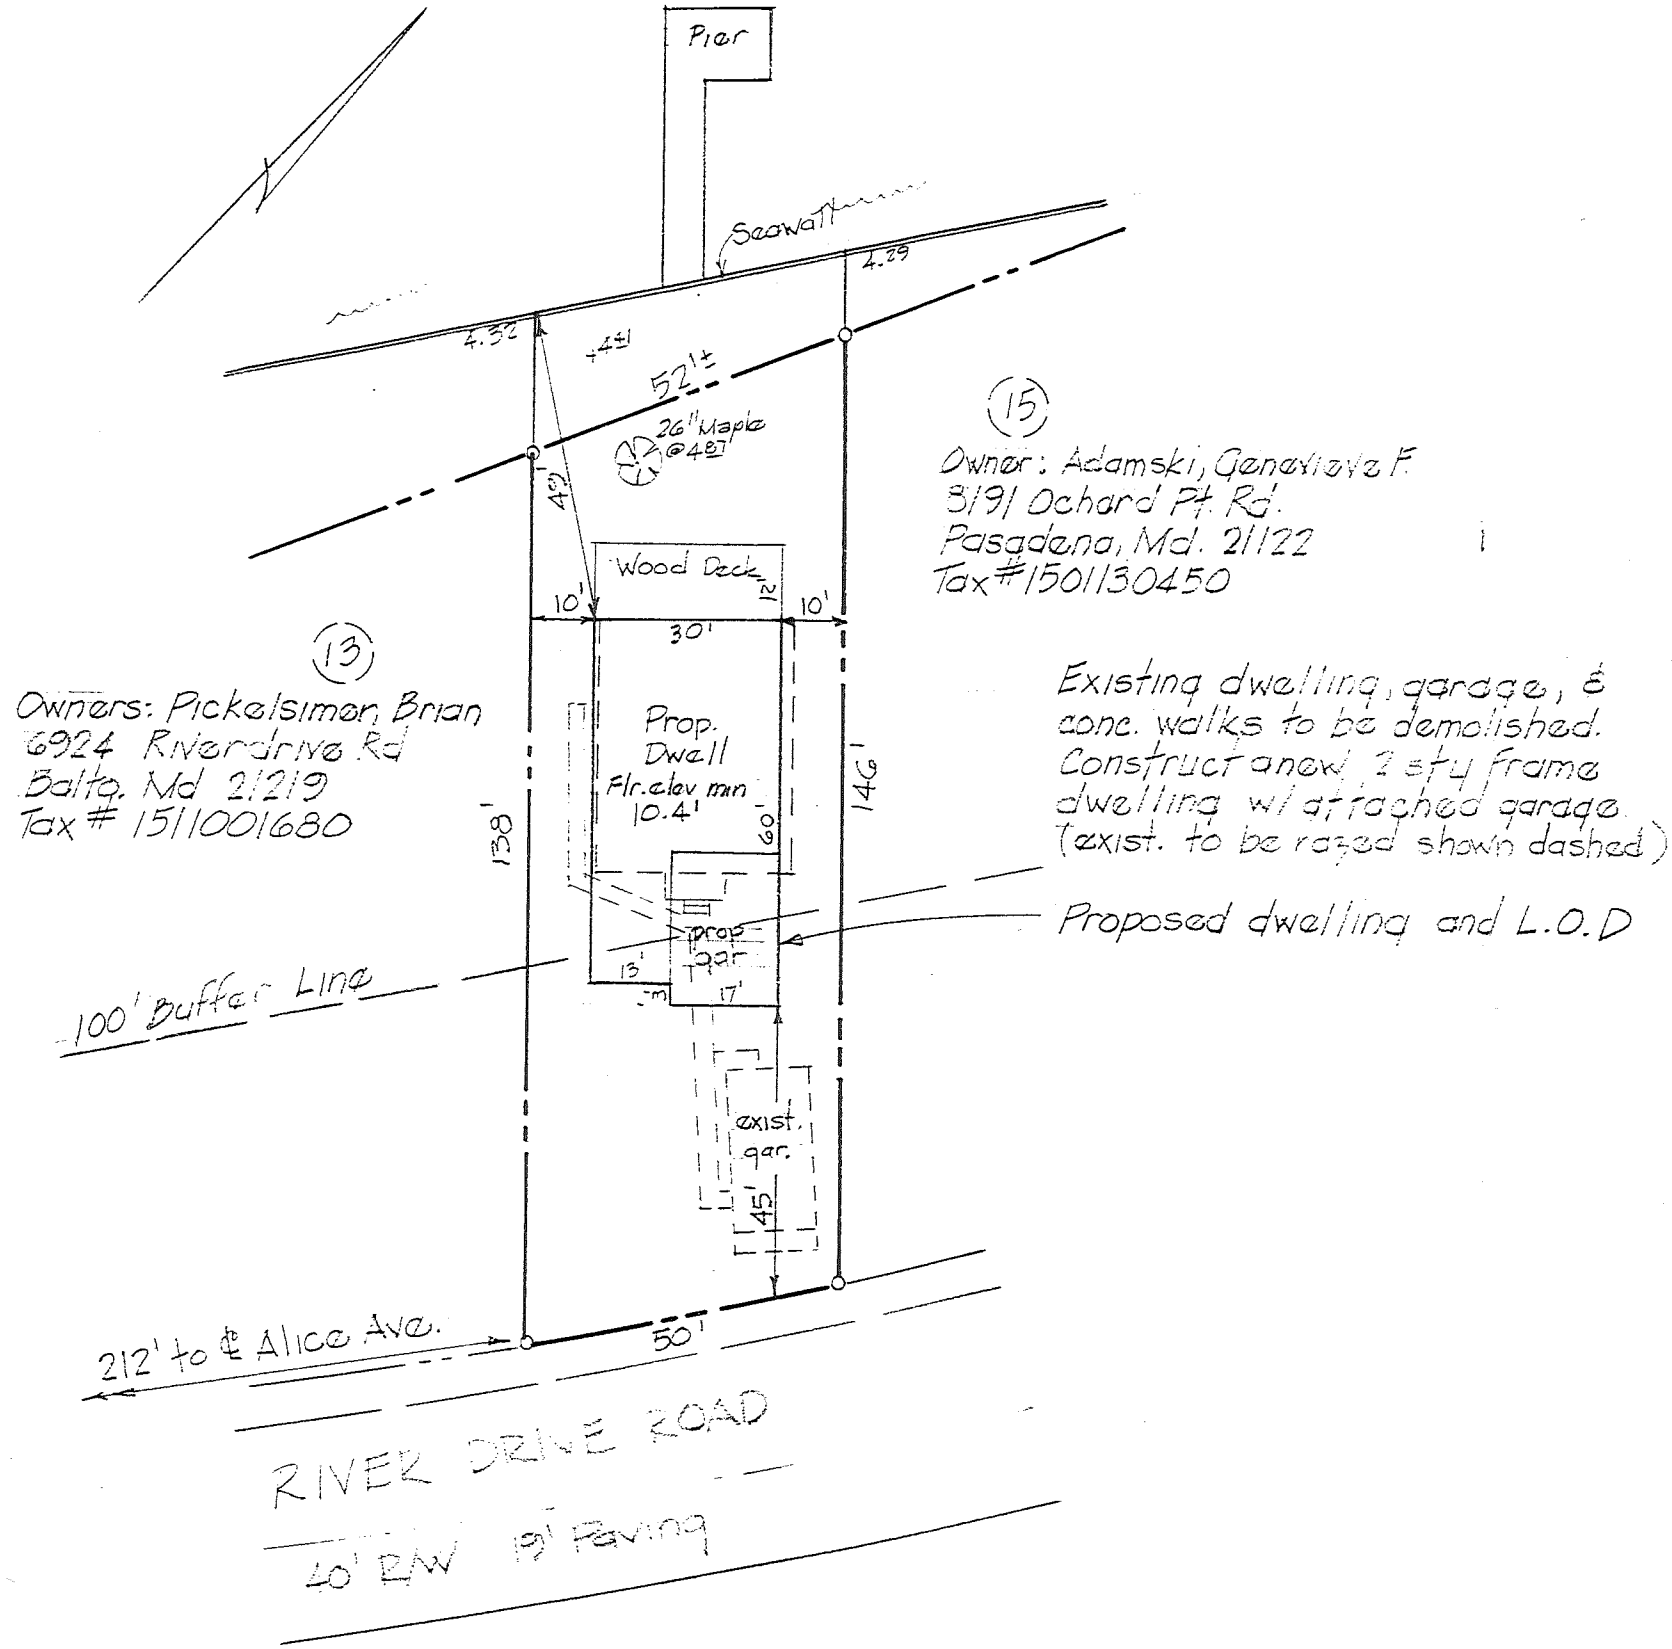 Pier
Seawall
4.29
4.32
+4.41
52'±
26" Maple
@ 4.87
49'
15
Owner: Adamski, Genevieve F.
8191 Ochard Pt. Rd.
Pasadena, Md. 21122
Tax # 1501130450
Wood Deck
12'
10'
30'
10'
13
Owners: Pickelsimer, Brian
6924 Riverdrive Rd
Balto. Md 21219
Tax # 1511001680
Prop.
Dwell
Flr. elev min
10.4'
60'
138'
146'
Existing dwelling, garage, &
conc. walks to be demolished.
Construct a new 2 sty frame
dwelling w/ attached garage.
(exist. to be razed shown dashed)
Proposed dwelling and L.O.D
prop
gar.
13'
3'
17'
100' Buffer Line
exist.
gar.
45'
212' to ℄ Alice Ave.
50'
RIVER DRIVE ROAD
40' R/W 19' Paving